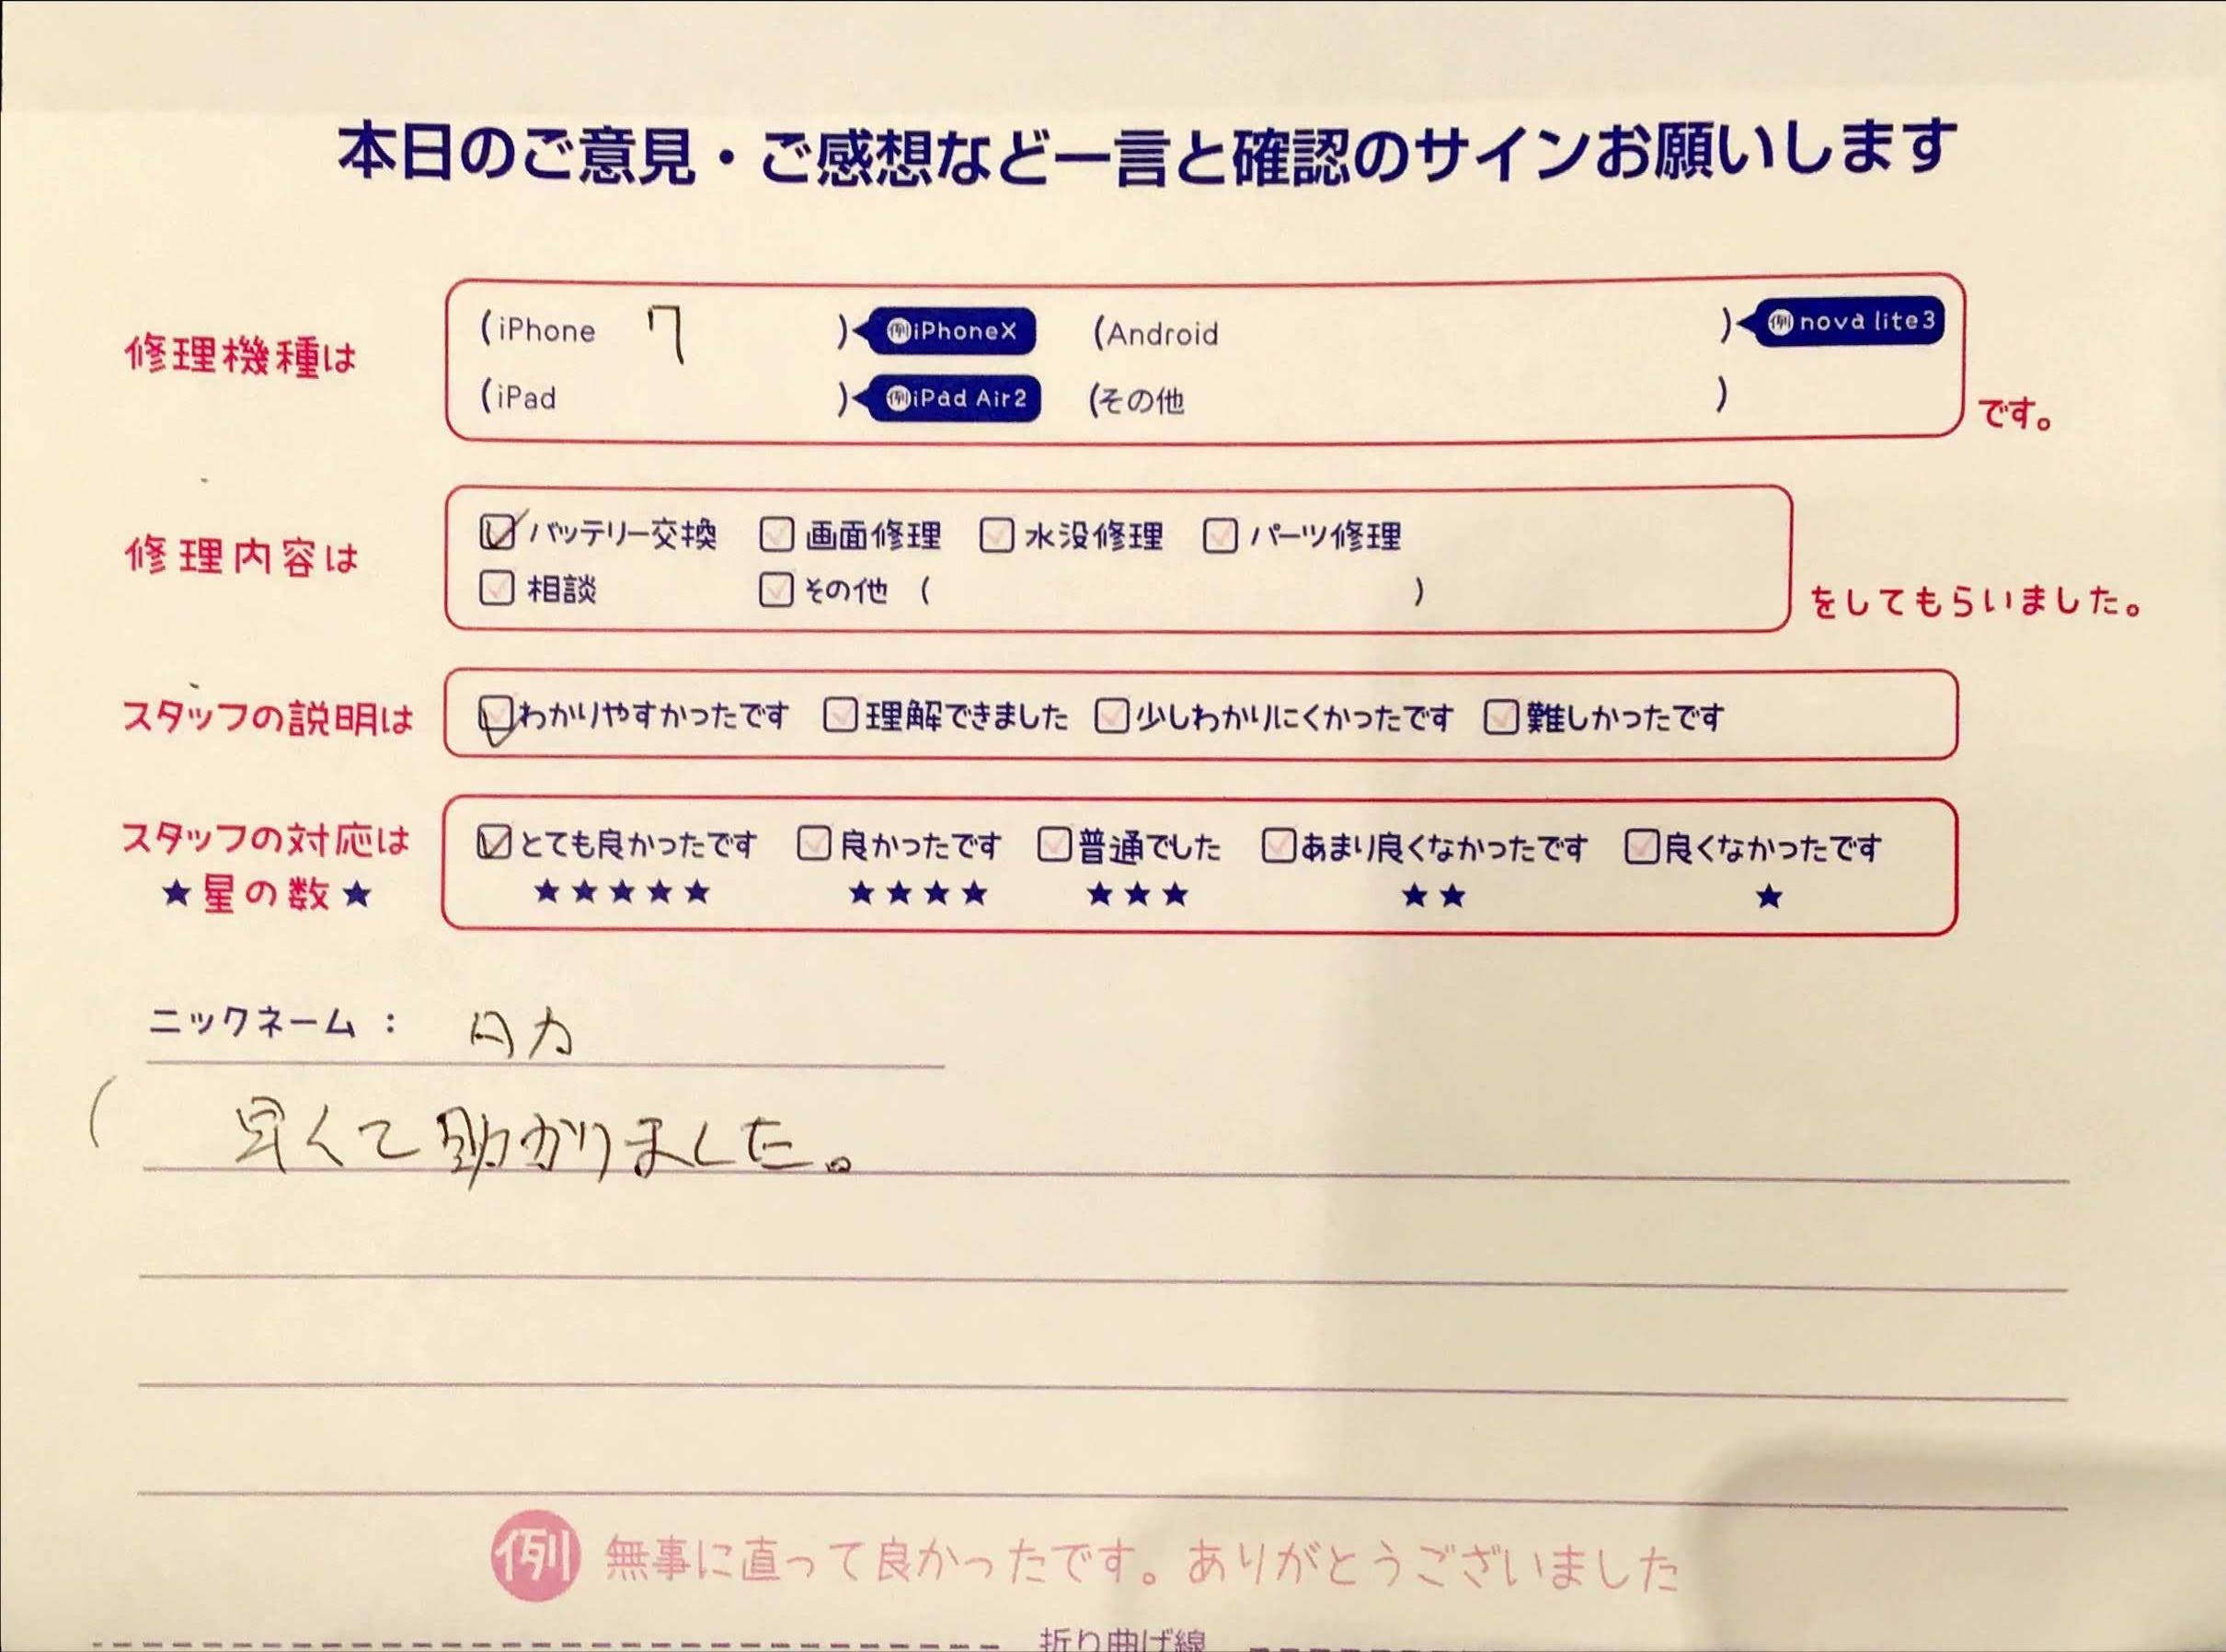 本日のご意見・ご感想など一言と確認のサインお願いします
修理機種は
(iPhone 7 ) 例iPhoneX (Android ) 例nova lite3
(iPad ) 例iPad Air2 (その他 )
です。
修理内容は
バッテリー交換 画面修理 水没修理 パーツ修理
相談 その他 ( )
をしてもらいました。
スタッフの説明は
わかりやすかったです 理解できました 少しわかりにくかったです 難しかったです
スタッフの対応は
★星の数★
とても良かったです 良かったです 普通でした あまり良くなかったです 良くなかったです
★★★★★ ★★★★ ★★★ ★★ ★
ニックネーム :
早くて助かりました。
例 無事に直って良かったです。ありがとうございました
折り曲げ線